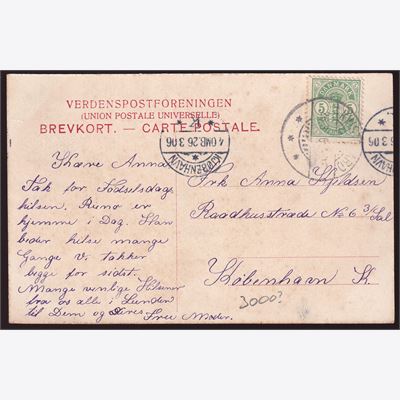 VERDENSPOSTFORENINGEN
(UNION POSTALE UNIVERSELLE)
BREVKORT. — CARTE POSTALE.
DANMARK
5 5
KJØBENHAVN
K
4 OMB 26 3 06
Kære Anna
Tak for Fødselsdags
hilsen. er
hjemme i Dag. Han
beder hilse mange
Gange Vi takker
begge for sidst.
Mange venlige Hilsener
fra os alle i Lunden
til Dem og Deres
Frk Anna Kjeldsen
Raadhusstræde No 6 3/ Sal
København K.
3000?